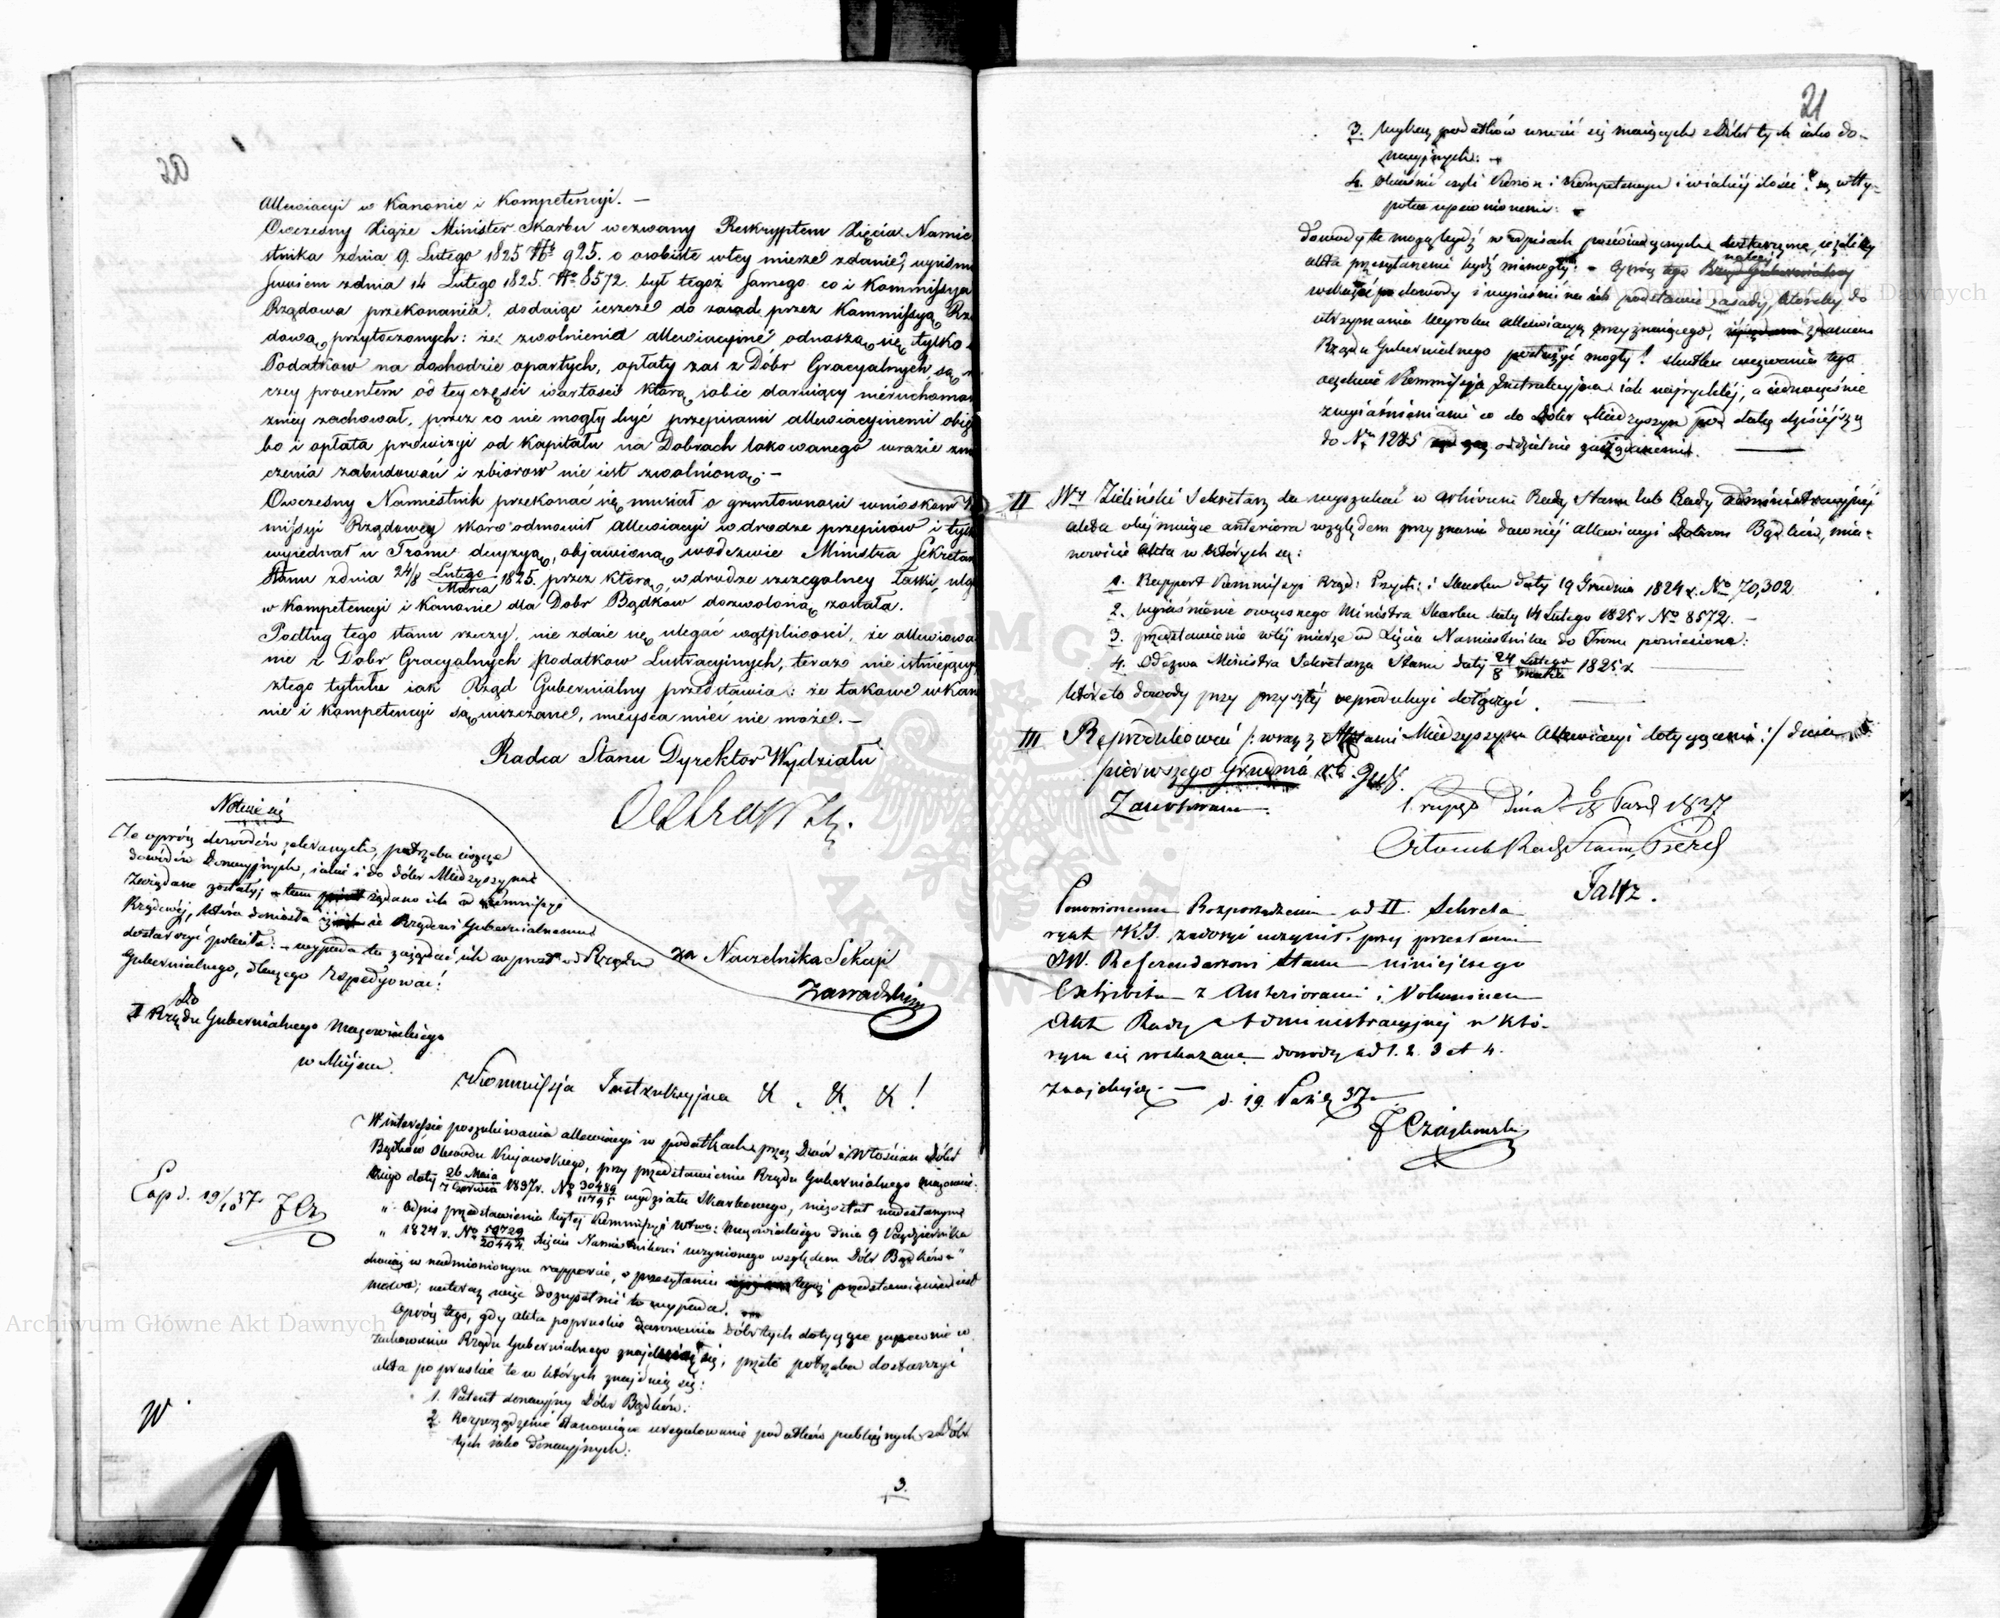 20
Allewiacyi w Kanonie i Kompetencyi. —
Owczesny Xiąże Minister Skarbu wezwany Reskryptem Xięcia Namie
stnika zdnia 9 Lutego 1825 No 925. o osobiste w tey mierze zdanie,
swoiem zdnia 14 Lutego 1825. No 8572. był tegoż samego co i Kommissya
Rządowa przekonania, dodaiąc ieszcze do zasad przez Kommissyą Rzą
dową przytoczonych: że zwolnienia allewiacyine odnoszą się tylko
Podatków na dochodzie opartych, opłaty zaś z Dóbr Gracyalnych są
czey procentem od tey części wartości którą sobie daruiący nieruchomo
zniey zachował, przez co nie mogły być przepisami allewiacyinemi obię
bo i opłata prowizyi od Kapitału na Dobrach lokowanego wrazie zni
czenia zabudowań i zbiorow nie iest zwolnioną. —
Owczesny Namiestnik przekonać się musiał o gruntowności wniosków
missyi Rządowey skoro odmówił allewiacyi w drodze przepisów i tylko
wyiednał u Tronu decyzyą, objawioną w odezwie Ministra Sekretarza
Stanu zdnia 24/8 Lutego/Marca 1825. przez którą, w drodze szczególney łaski, ulga
w Kompetencyi i Kanonie dla Dóbr Bądków dozwoloną została.
Podług tego stanu rzeczy, nie zdaie się ulegać wątpliwości, że allewiowa
nie z Dóbr Gracyalnych podatków Lustracyinych, teraz nie istniejący
ztego tytułu iak Rząd Gubernialny przedstawia: że takowe w Kano
nie i kompetencyi są mieszczane, mieysca mieć nie może. —
Radca Stanu Dyrektor Wydziału
Notuie się
Że oprócz dowodów zebranych, potrzeba ieszcze
dowodów Donacyjnych, iakie i do dóbr Miedzyszyna
zażądane zostały; żądano ich od Kommissyi
Rządowéj, która doniosła że Rządowi Gubernialnemu
dostarczyć poleciła: — wypada te zażądać ich wprost od Rządu
Gubernialnego, dlaczego Expedyować:
za Naczelnika Sekcji
Zawadzki
Do
I Rządu Gubernialnego Mazowieckiego
w Miejscu.
Kommissja Instrukcyjna & . & . & !
W interesie poszukiwania allewiacyi w podatkach przez Dwór i Włościan dóbr
Bądków Obwodu Kujawskiego, przy przedstawieniu Rządu Gubernialnego Mazowiec:
kiego daty 26 Maia/7 Czerwca 1837 r. No 30489/11795 wydziału Skarbowego, nie został nadesłanym
„ Odpis przedstawienia byłej Kommissyi Wtwa: Mazowieckiego dnia 9 Października
„ 1824 r. No 59729/20444 Xięciu Namiestnikowi uczynionego względem Dóbr Bądków „
chociaż w nadmienionym rapporcie, o przesyłaniu tegoż przedstawienia iest
mowa; na teraz więc dozupełnić to wypada.
Oprócz tego, gdy akta popruskie darowania Dóbr tych dotyczące zapewne w
zachowaniu Rządu Gubernialnego znajduią się, przeto potrzeba dostarczyć
akta po pruskie te w których znajdują się:
1. Patent donacyjny Dóbr Bądków.
2. Rozporządzenie stanowiące uregulowanie podatków publicznych z Dóbr
tych iako Donacyjnych:
3.
Exp d. 19/10 37 r. FCz
21
3. Wykaz podatków uiścić się maiących z Dóbr tych iako do-
nacyjnych: —
4. Obiaśnić czyli Kanon i Kompetencya i w iakiej ilości są w Hy-
potece upewnionemi: —
Dowody te mogą bydź w odpisach poświadczonych dostarczone, ieżeliby
akta przesyłanemi bydź niemogły: — Oprócz tego należy
wskazać dowody i wyiaśnić na ich podstawie zasady, któreby do
otrzymania wyroku allewiacyą przyznaiącego, zdaniem
Rządu Gubernialnego posłużyć mogły! Skutku wezwania tego
oczekuie Kommissja Instrukcyjna iak najrychléj, a iednocześnie
z wyiaśnieniami co do Dóbr Miedzyszyn pod datą dzisiéjszą
do No 1285 oddzielnie zażądanemi.
II Wy Zieliński Sekretarz da wyszukać w archiwum Rady Stanu lub Rady administracyjnéj
akta obejmuiące anteriora względem przyznania dawniéj allewiacyi Dobrom Bądków, mia-
nowicie akta w których są:
1. Rapport Kommissyi Rząd: Przych: i Skarbu daty 19 Grudnia 1824 r. No 70,302.
2. Wyiaśnienie owczesnego Ministra Skarbu daty 14 Lutego 1825 r No 8572. —
3. przedstawienie w téj mierze od Xięcia Namiestnika do Tronu poniesione:
4. Odezwa Ministra Sekretarza Stanu daty 24/8 Lutego/Marca 1825 r.
które to dowody przy przyszłéj reprodukcyi dołączyć.
III Reprodukować /: wraz z Aktami Miedzyszyna Allewiacyi dotyczącemi :/ dnia
pierwszego Grudnia r. b.
Zanotowano.
Dnia 6/18 Paźd 1837
Członek Rady Stanu,
Ponowionemu Rozporządzeniu ad II. Sekreta
ryat K.I. zadosyć uczynił, przy przesłaniu
JW. Referendarzowi Stanu niniejszego
Exhibitu z Anteriorami i Voluminem
Akt Rady Administracyjnej w któ-
rym się wskazane dowody ad 1. 2. 3 et 4.
znajdują. —
d. 19. Paźdz 37 r.
F Czajkowski
Archiwum Główne Akt Dawnych
Archiwum Główne Akt Dawnych